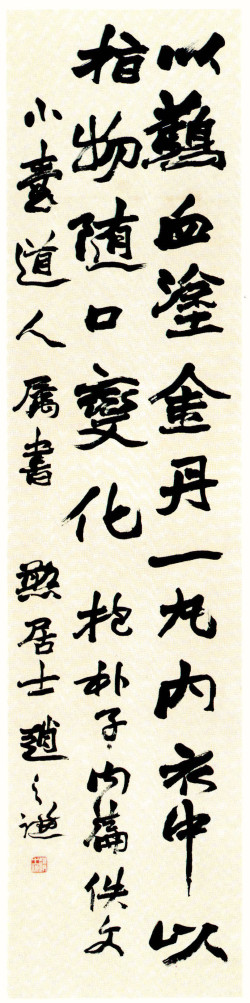 以血塗金丹一丸內衣中以
指物隨口變化 抱朴子內篇佚文
小道人屬書 憨居士趙之謙